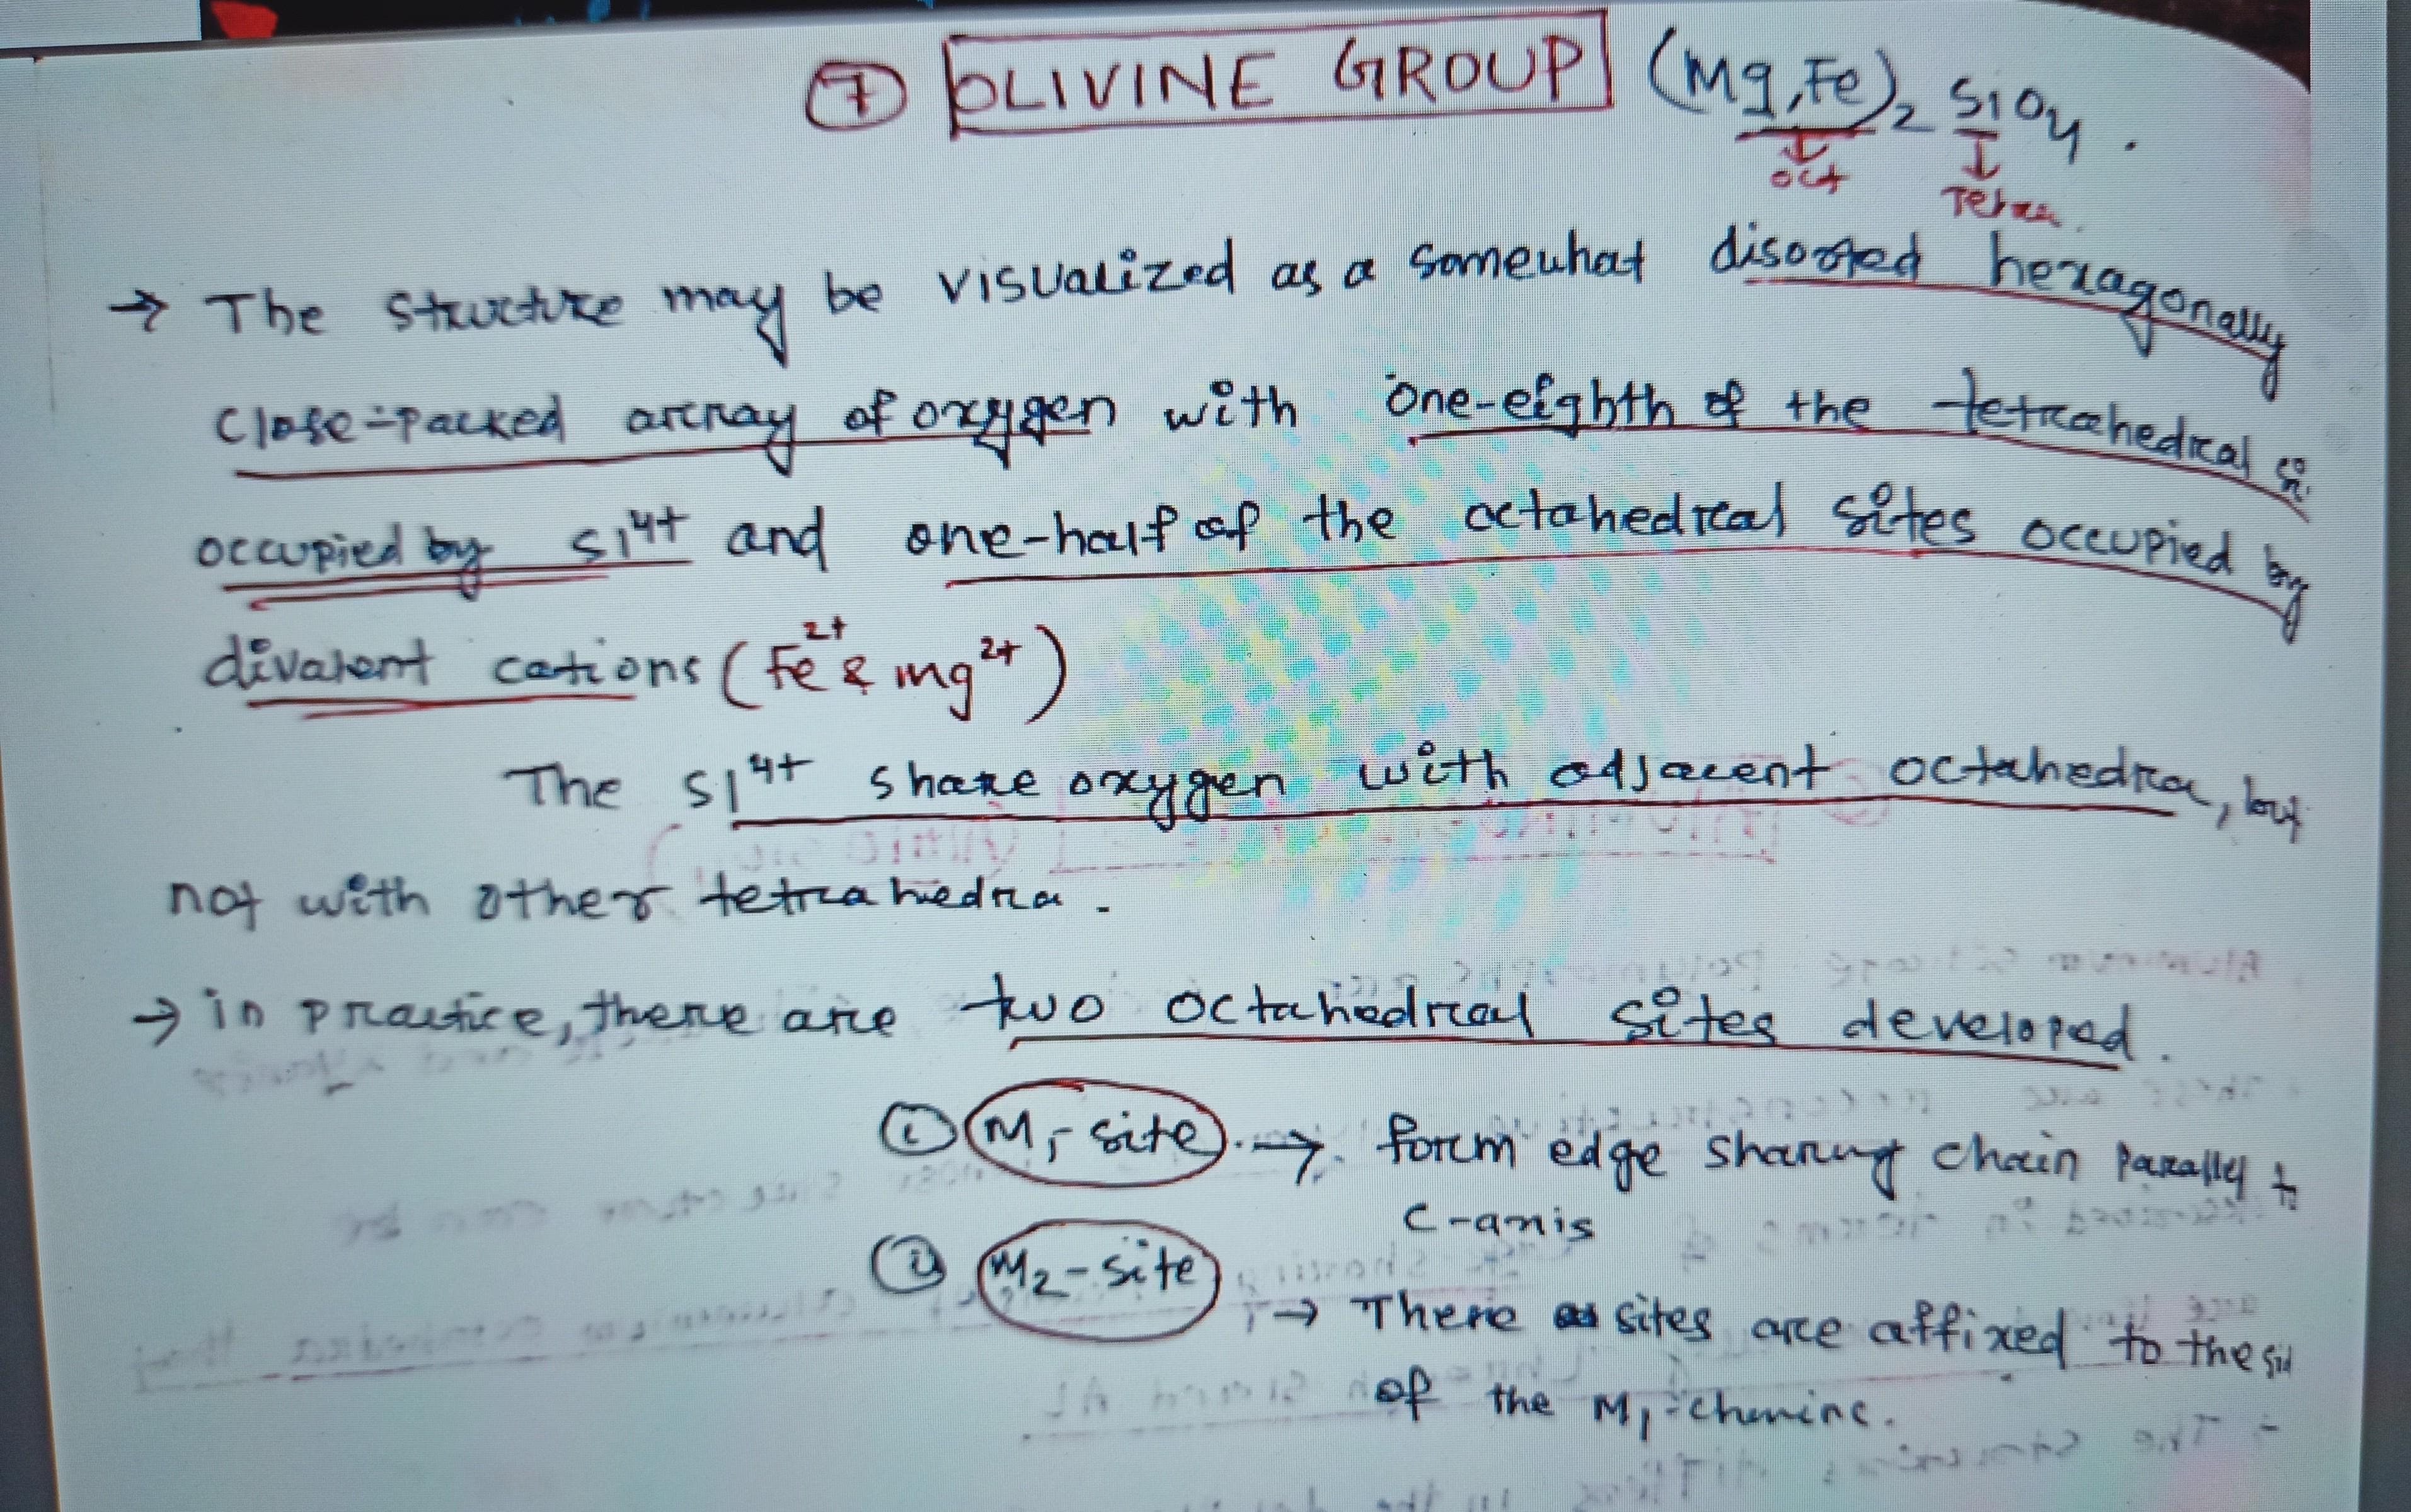 ⑦ OLIVINE GROUP (Mg,Fe)₂ SiO₄.
↓ oct ↓ Tetra.
→ The structure may be visualized as a somewhat disorted hexagonally
close-packed array of oxygen with one-eighth of the tetrahedral si
occupied by Si⁴⁺ and one-half of the octahedral sites occupied by
divalent cations (Fe²⁺ & mg²⁺)
The Si⁴⁺ share oxygen with adjacent octahedra, but
not with other tetrahedra.
→ in practice, there are two octahedral sites developed.
① M₁-site. → form edge sharing chain parally to
C-axis
② M₂-site
→ There sites are affixed to the sid
of the M₁-